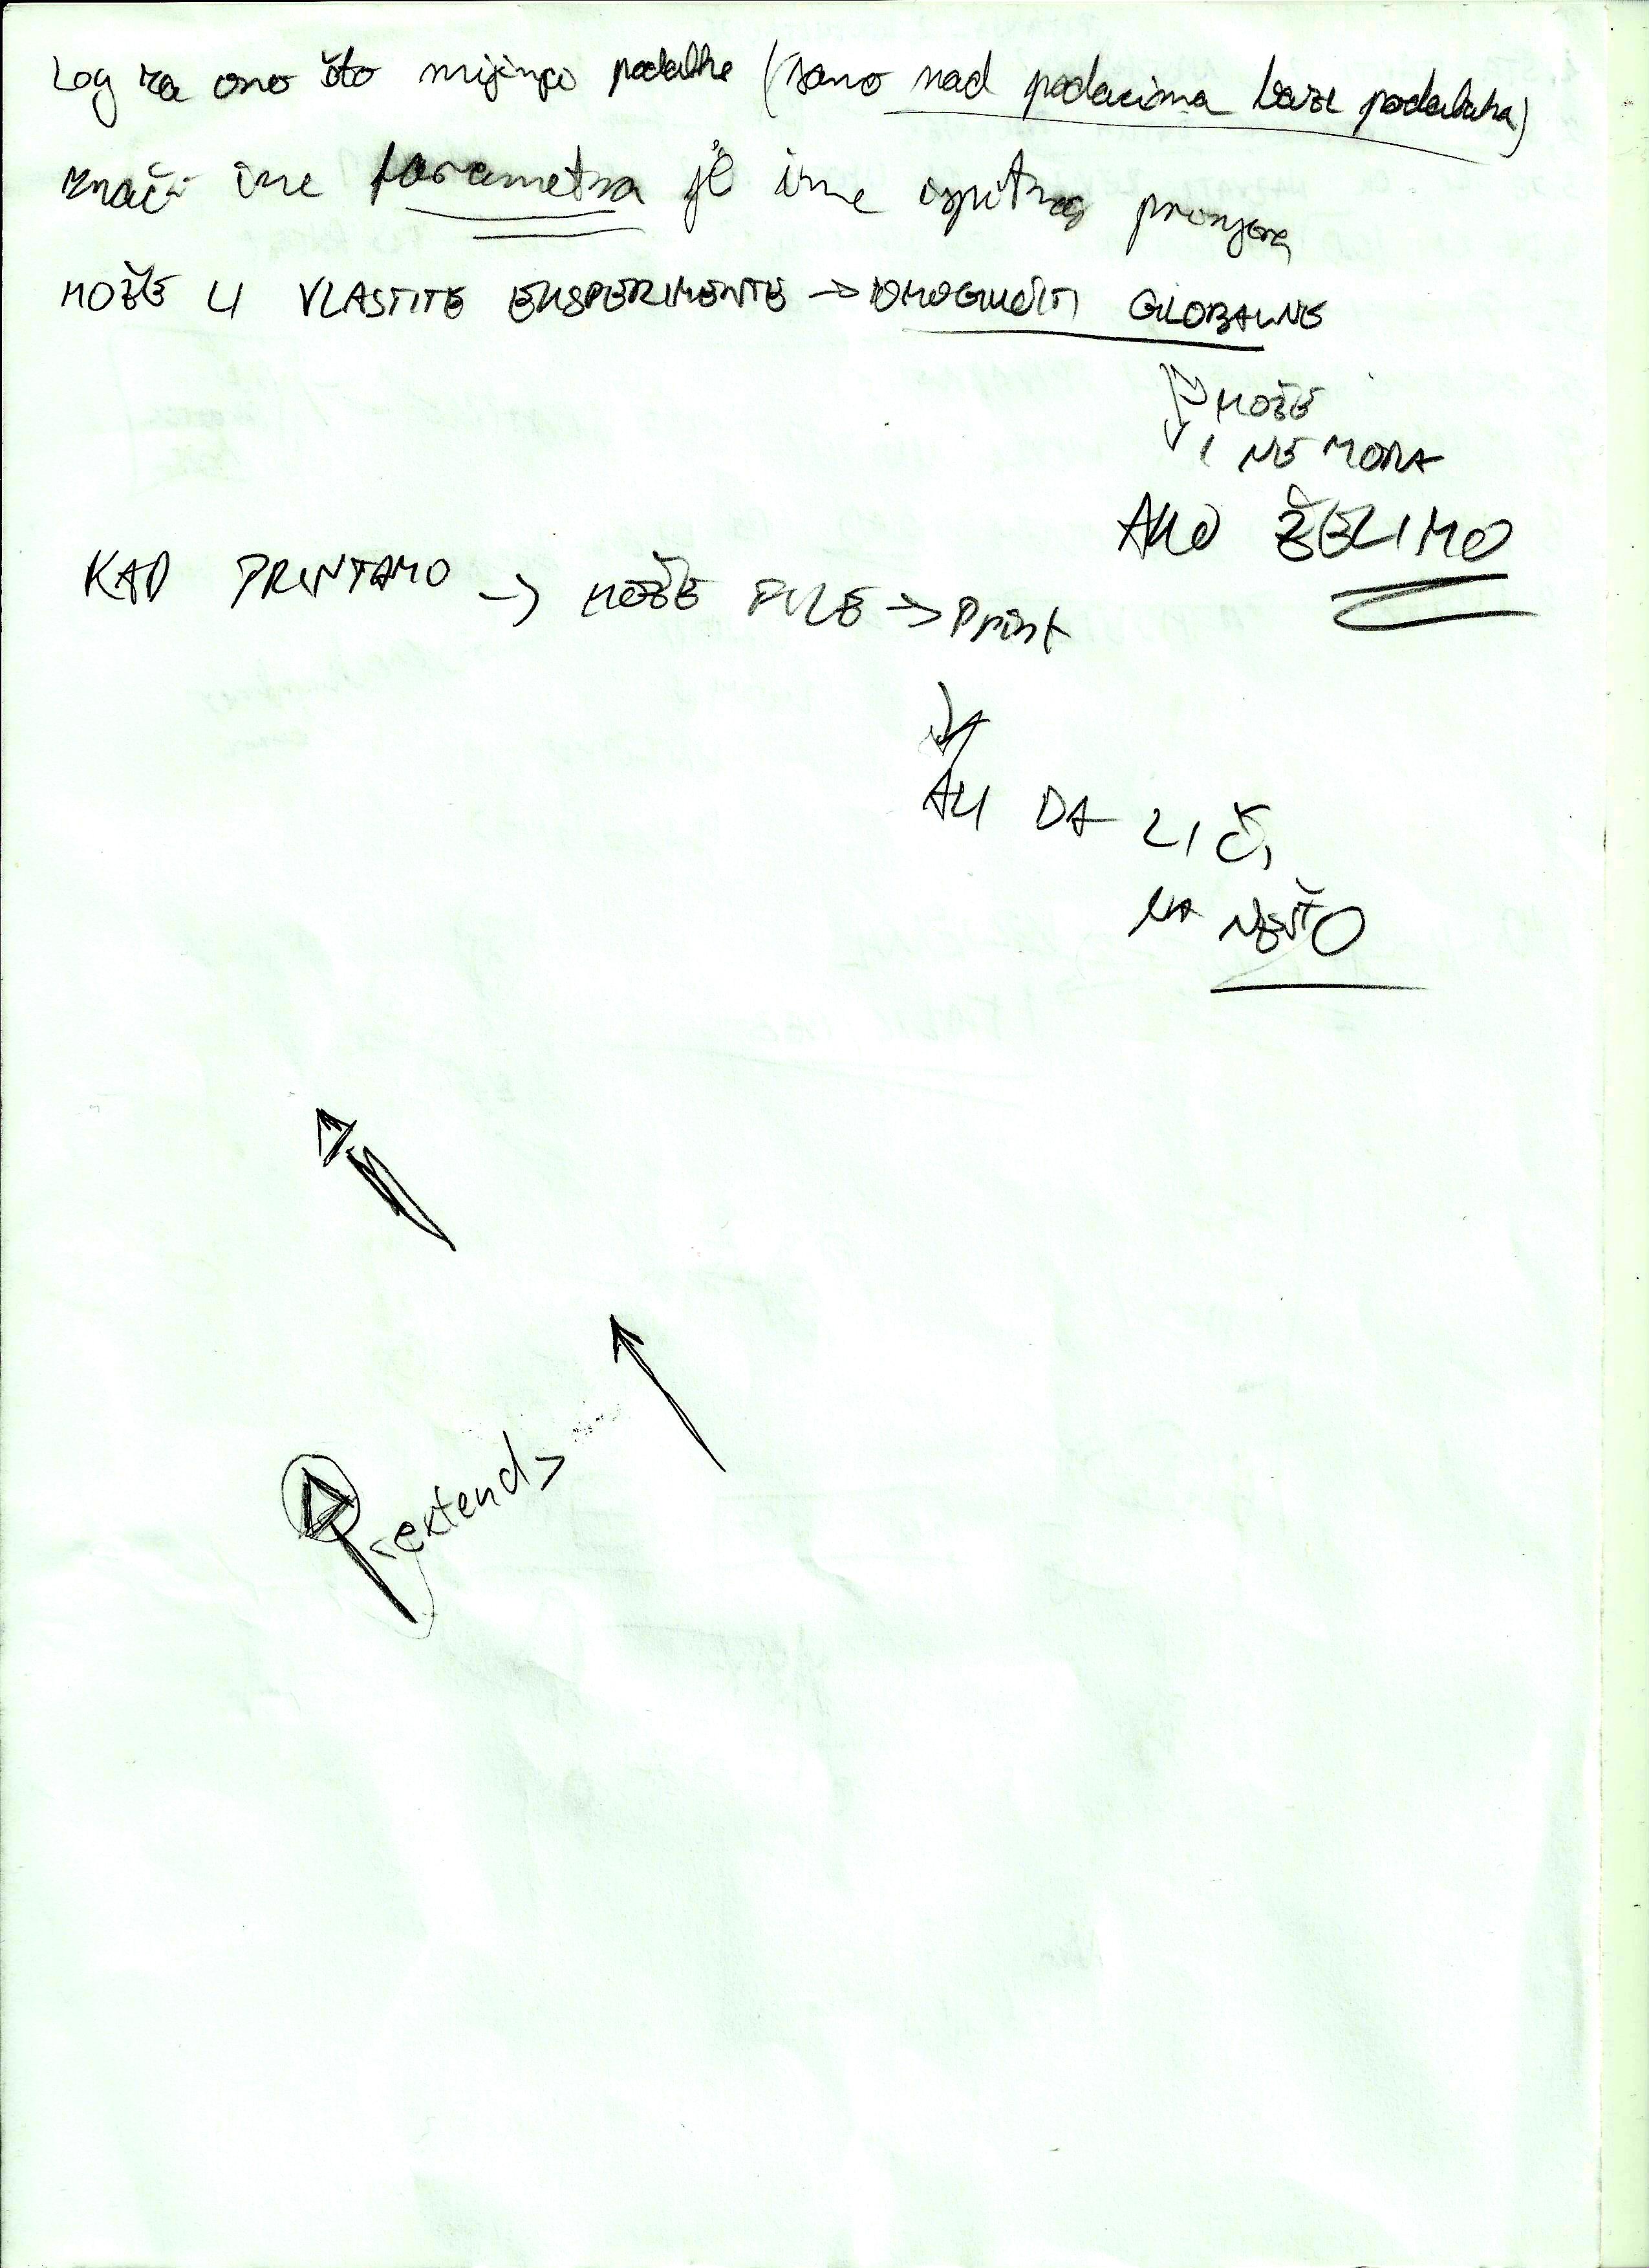 Log za ono što mijenja podatke (samo nad podacima baze podataka)
znači ime parametra je ime ispitnog primjera
MOŽE LI VLASTITE EKSPERIMENTE → OMOGUĆITI GLOBALNE
MOŽE
I NE MORA
AKO ŽELIMO
KAD PRINTAMO → MOŽE FILE → Print
ALI DA LIČI
NA NEŠTO
<extend>